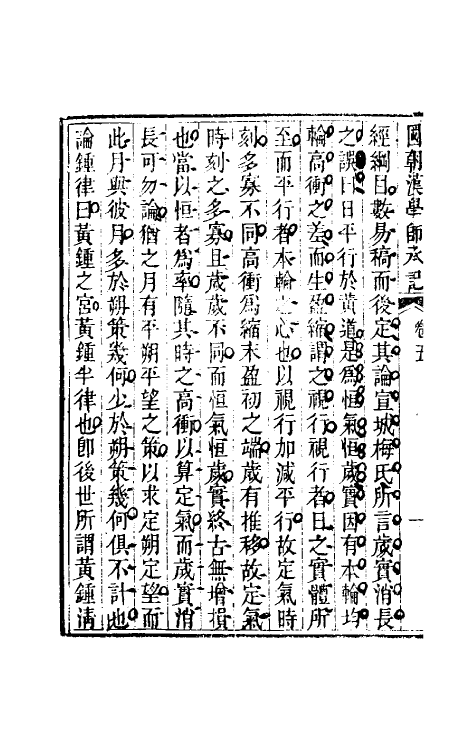 國朝漢學師承記 卷五 一
經綱目數易稿而後定其論宣城梅氏所言歲實消長
之誤曰日平行於黃道是為恒氣恒歲實因有本輪均
輪高衝之差而生盈縮謂之視行視行者日之實體所
至而平行者本輪之心也以視行加減平行故定氣時
刻多寡不同高衝為縮末盈初之端歲有推移故定氣
時刻之多寡且歲歲不同而恒氣恒歲實終古無增損
也當以恒者為率隨其時之高衝以算定氣而歲實消
長可勿論猶之月有平朔平望之策以求定朔定望而
此月與彼月多於朔策幾何少於朔策幾何俱不計也
論鍾律曰黃鍾之宮黃鍾半律也卽後世所謂黃鍾清